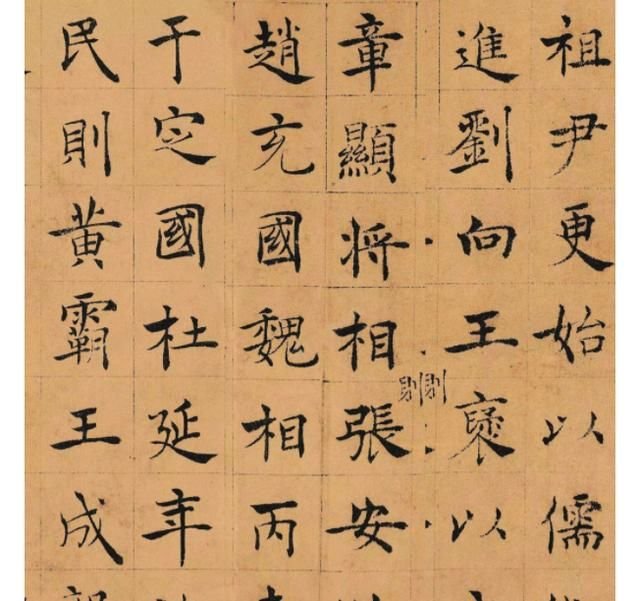 祖尹更始以儒
進劉向王褒以
章顯将相張安
則則
趙充國魏相丙
于定國杜延年
民則黄霸王成